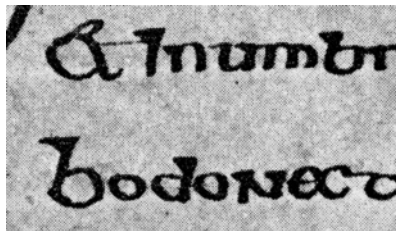 & inumbr
bodonect